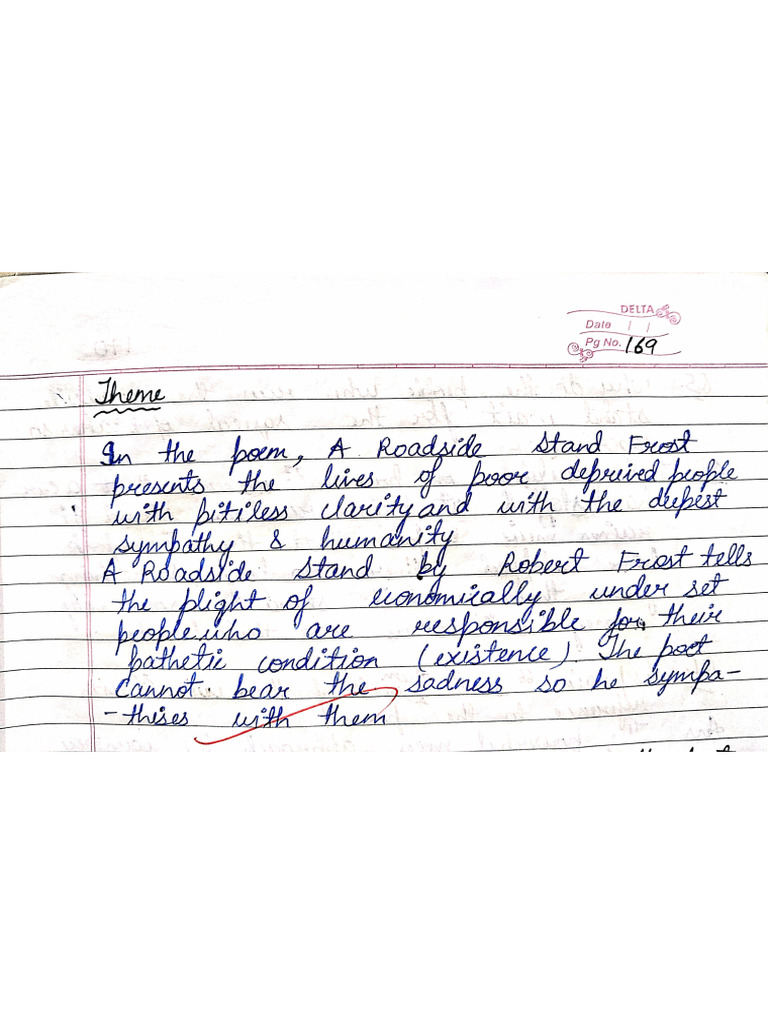 DELTA
Date / /
Pg No. 169
Theme
In the poem, A Roadside Stand Frost
presents the lives of poor deprived people
with pitiless clarity and with the deepest
sympathy & humanity
A Roadside Stand by Robert Frost tells
the plight of economically under set
people who are responsible for their
pathetic condition (existence). The poet
cannot bear the sadness so he sympa-
-thises with them